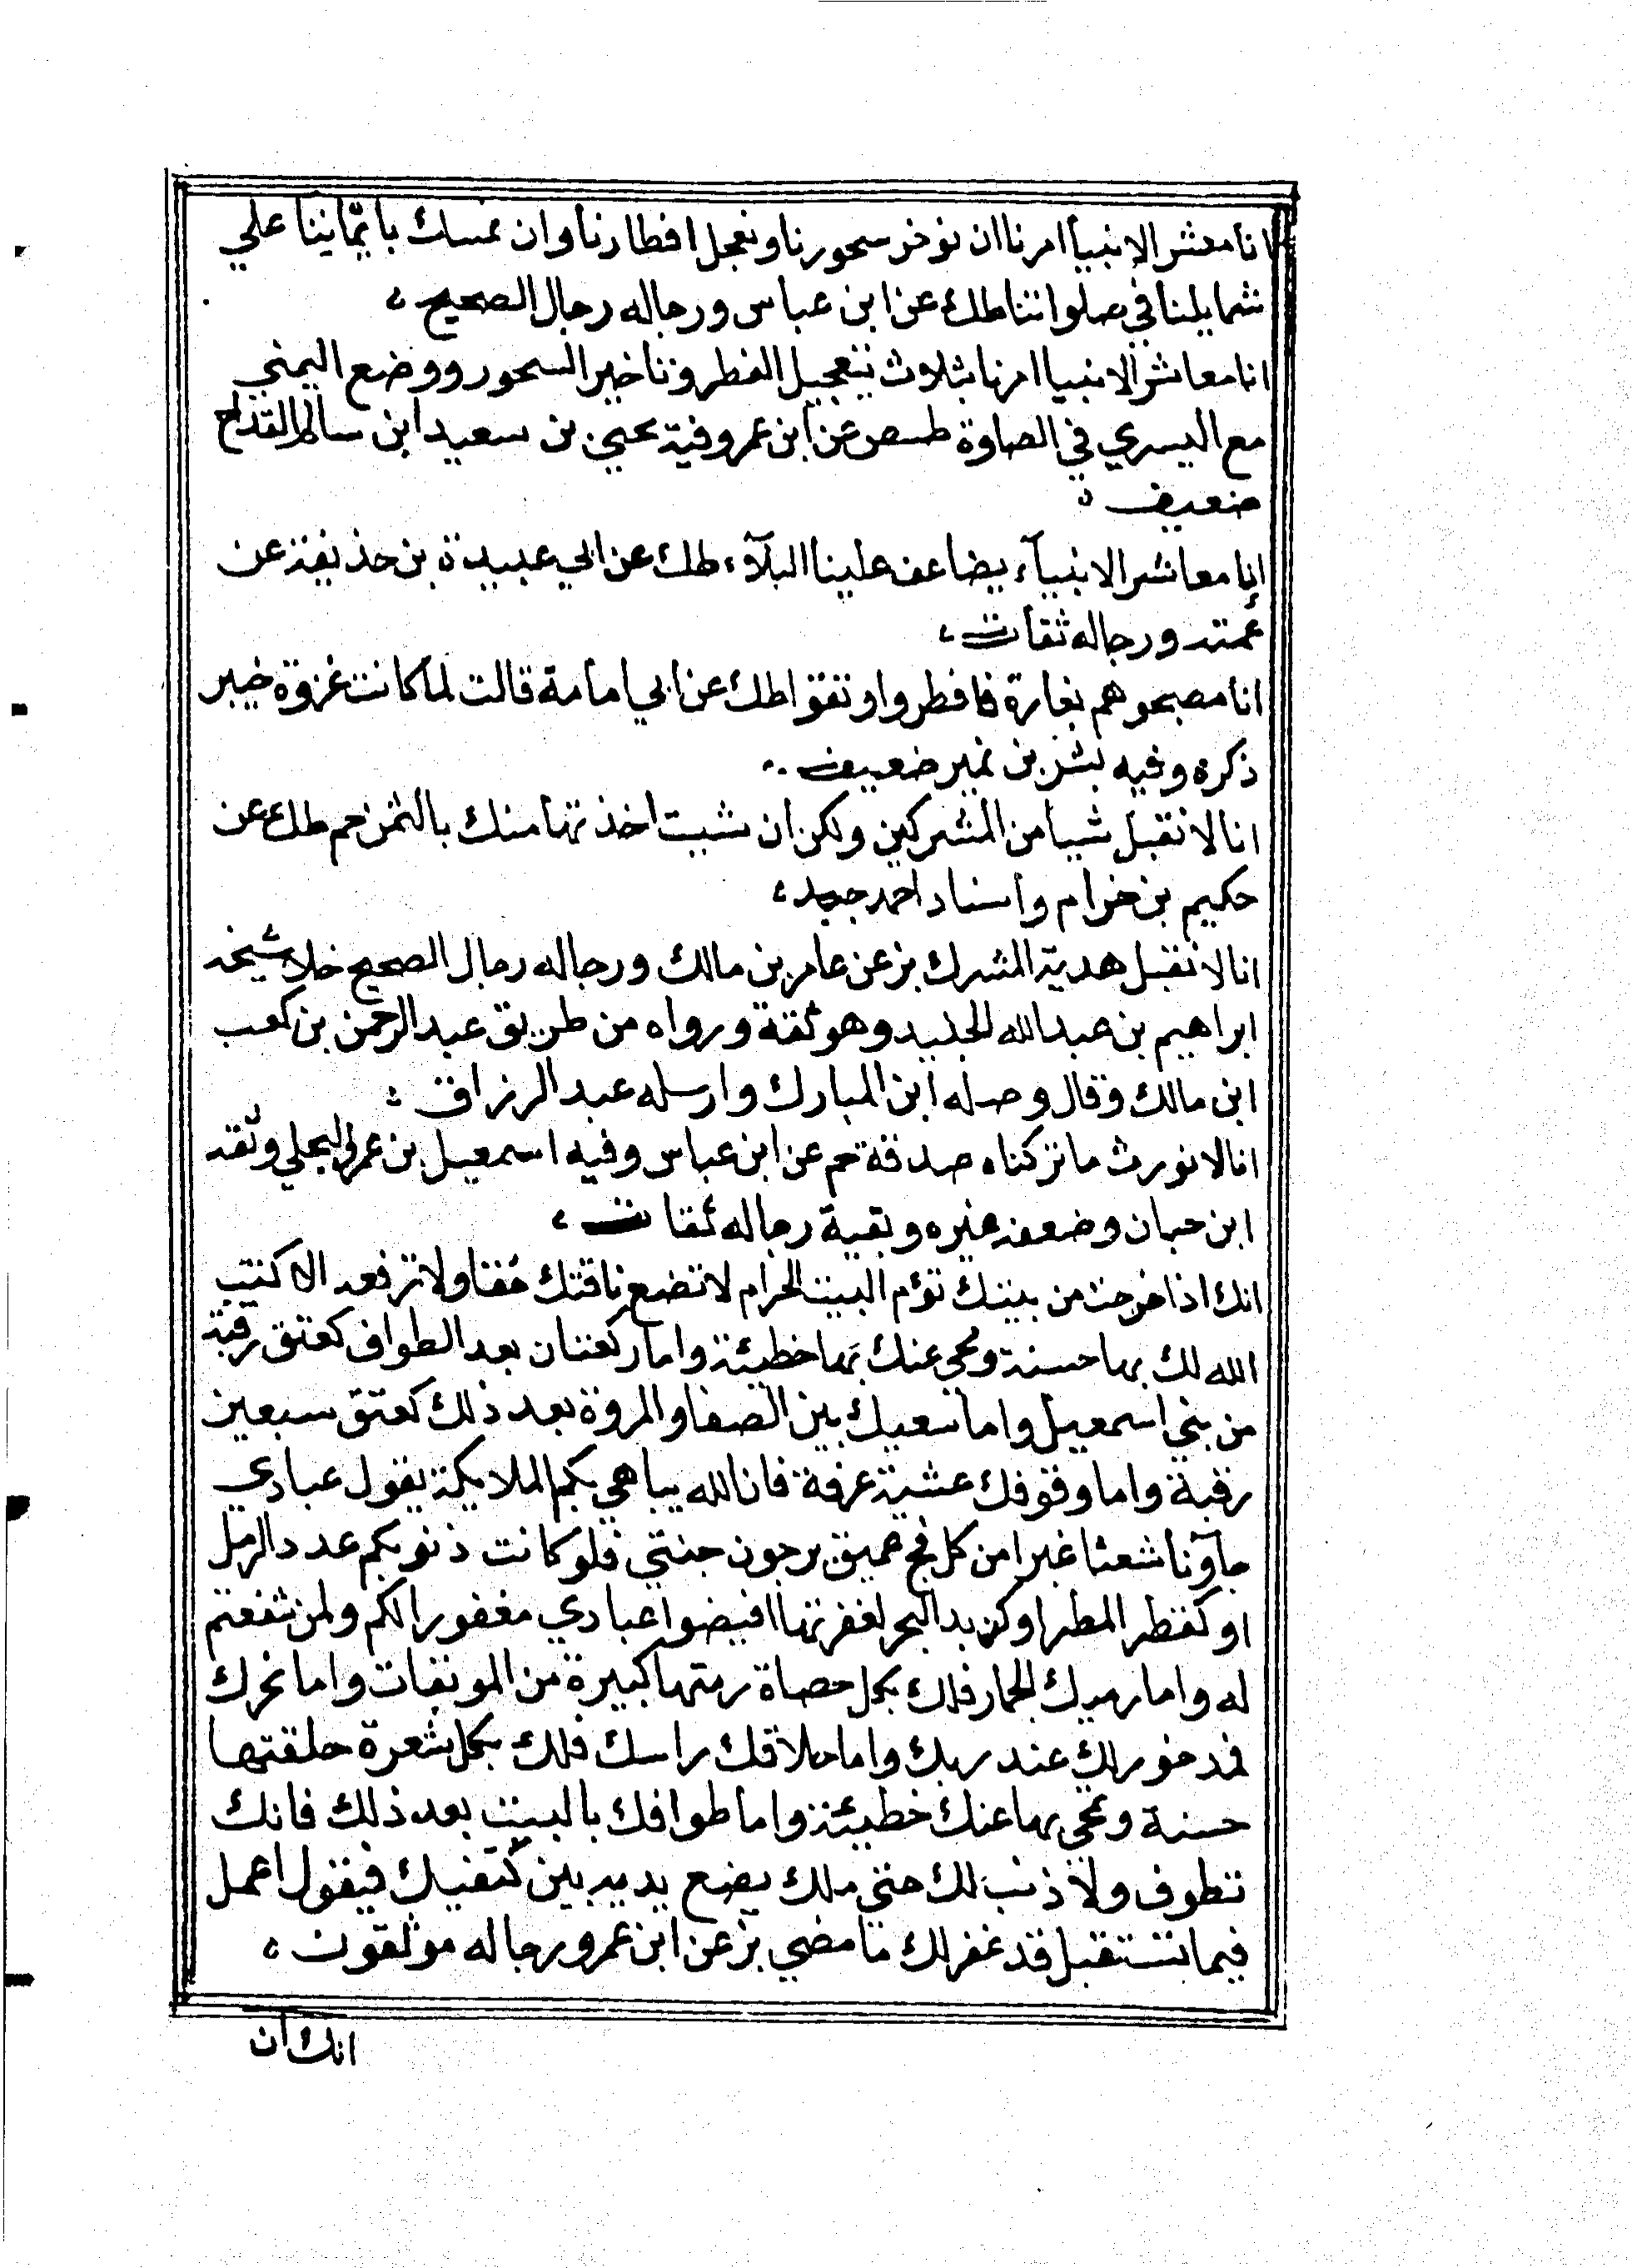 انا معشر الانبيا امرنا ان نوخر سحورنا ونعجل افطارنا وان نمسك بايماننا علي
شمايلنا في صلواتنا طك عن ابن عباس ورجاله رجال الصحيح ،
انا معاشر الانبيا امرنا بثلاث بتعجيل الفطر وتاخير السحور ووضع اليمني
مع اليسري في الصلوة طسص عن ابن عمر وفيه يحيي بن سعيد ابن سالم القداح
ضعيف ،
انا معاشر الانبيآء يضاعف علينا البلآء طك عن ابي عبيدة بن حذيفة عن
عمته ورجاله ثقات ،
انا مصبحوهم بغارة فافطروا وتقووا طك عن ابي امامة قالت لما كانت غزوة خيبر
ذكره وفيه بشر بن نمير ضعيف ..
انا لا نقبل شيا من المشركين ولكن ان شيت اخذتها منك بالثمن حم طك عن
حكيم بن حزام واسناد احمد جيد ،
انا لا نقبل هدية المشرك بز عن عامر بن مالك ورجاله رجال الصحيح خلا شيخه
ابراهيم بن عبدالله الجنيد وهو ثقة ورواه من طريق عبد الرحمن بن كعب
ابن مالك وقال وصله ابن المبارك وارسله عبد الرزاق :
انا لا نورث ما تركناه صدقة حم عن ابن عباس وفيه اسمعيل بن عمرو البجلي وثقه
ابن حبان وضعفه غيره وبقية رجاله ثقات ،
انك اذا خرجت من بيتك تؤم البيت الحرام لا تضع ناقتك خفا ولا ترفعه الا كتب
الله لك بها حسنة ومحي عنك بها خطيئة واما ركعتان بعد الطواف كعتق رقبة
من بني اسمعيل واما سعيك بين الصفا والمروة بعد ذلك كعتق سبعين
رقبة واما وقوفك عشية عرفة فان الله يباهي بكم الملايكة يقول عبادي
جآونا شعثا غبرا من كل فج عميق يرجون جنتي فلو كانت ذنوبكم عدد الرمل
او كقطر المطر او كزبد البحر لغفرتها افيضوا عبادي مغفورا لكم ولمن شفعتم
له واما رميك الجمار فلك بكل حصاة رميتها كبيرة من الموبقات واما نحرك
فمدخور لك عند ربك واما حلاقك راسك فلك بكل شعرة حلقتها
حسنة ويمحي بها عنك خطيئة واما طوافك بالبيت بعد ذلك فانك
تطوف ولا ذنب لك حتي ملك يضع يديه بين كتفيك فيقول اعمل
فيما تستقبل قد غفر لك ما مضي بز عن ابن عمر ورجاله موثقون ،
انك ان